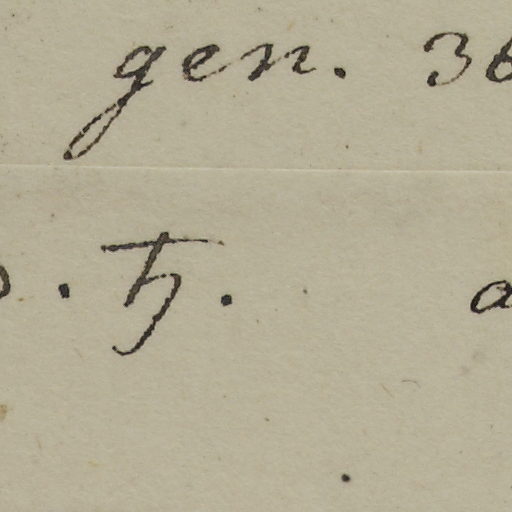 gen. 36
. ♄. a